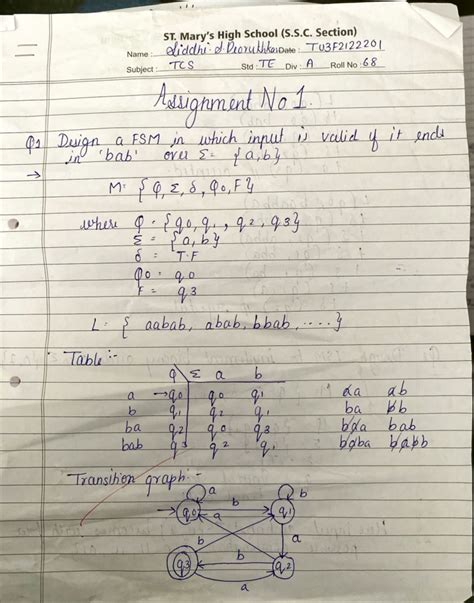 ST. Mary's High School (S.S.C. Section)
Name : Siddhi d Date : TU3F2122201
Subject : TCS Std : TE Div : A Roll No : 68
Assignment No 1.
Q1 Design a FSM in which input is valid if it ends
in 'bab' over Σ = {a,b}
→ M = {Q, Σ, δ, q0, F}
where Q = {q0, q1, q2, q3}
Σ = {a, b}
δ = T.F
q0 = q0
F = q3
L = { aabab, abab, bbab, ....}
Table :-
Q \ Σ a b
a → q0 q0 q1 aa ab
b q1 q2 q1 ba bb
ba q2 q0 q3 baa bab
bab q3 q2 q1 baba babb
Transition graph :-
a b
q0 b q1
a
b a
q3 b q2
a